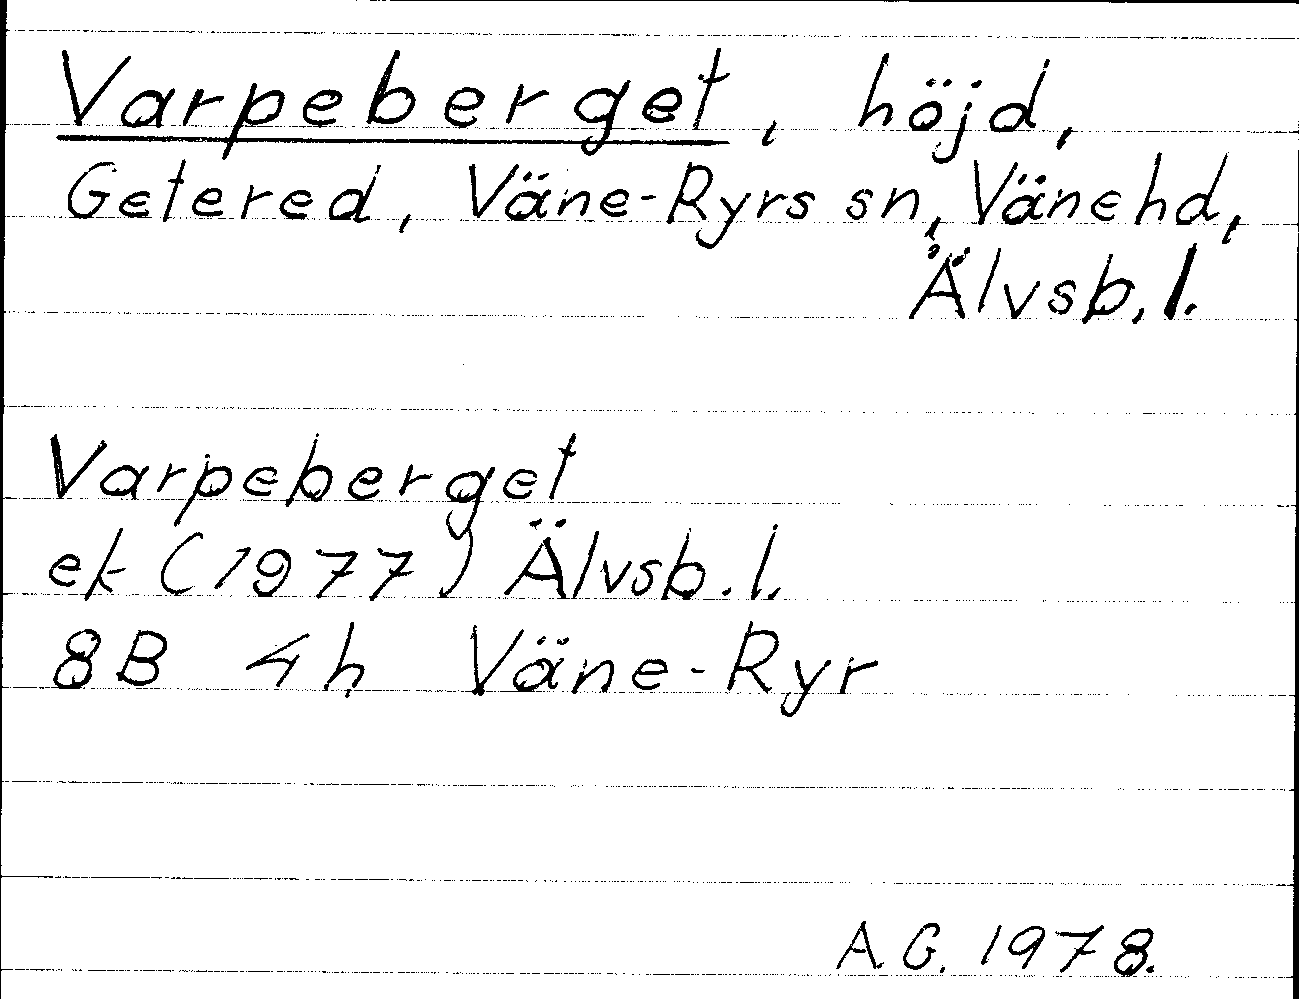 Varpeberget, höjd,
Getered, Väne-Ryrs sn, Väne hd,
Älvsb. l.
Varpeberget
ek (1977) Älvsb. l.
8B 4h Väne-Ryr
A.G. 1978.